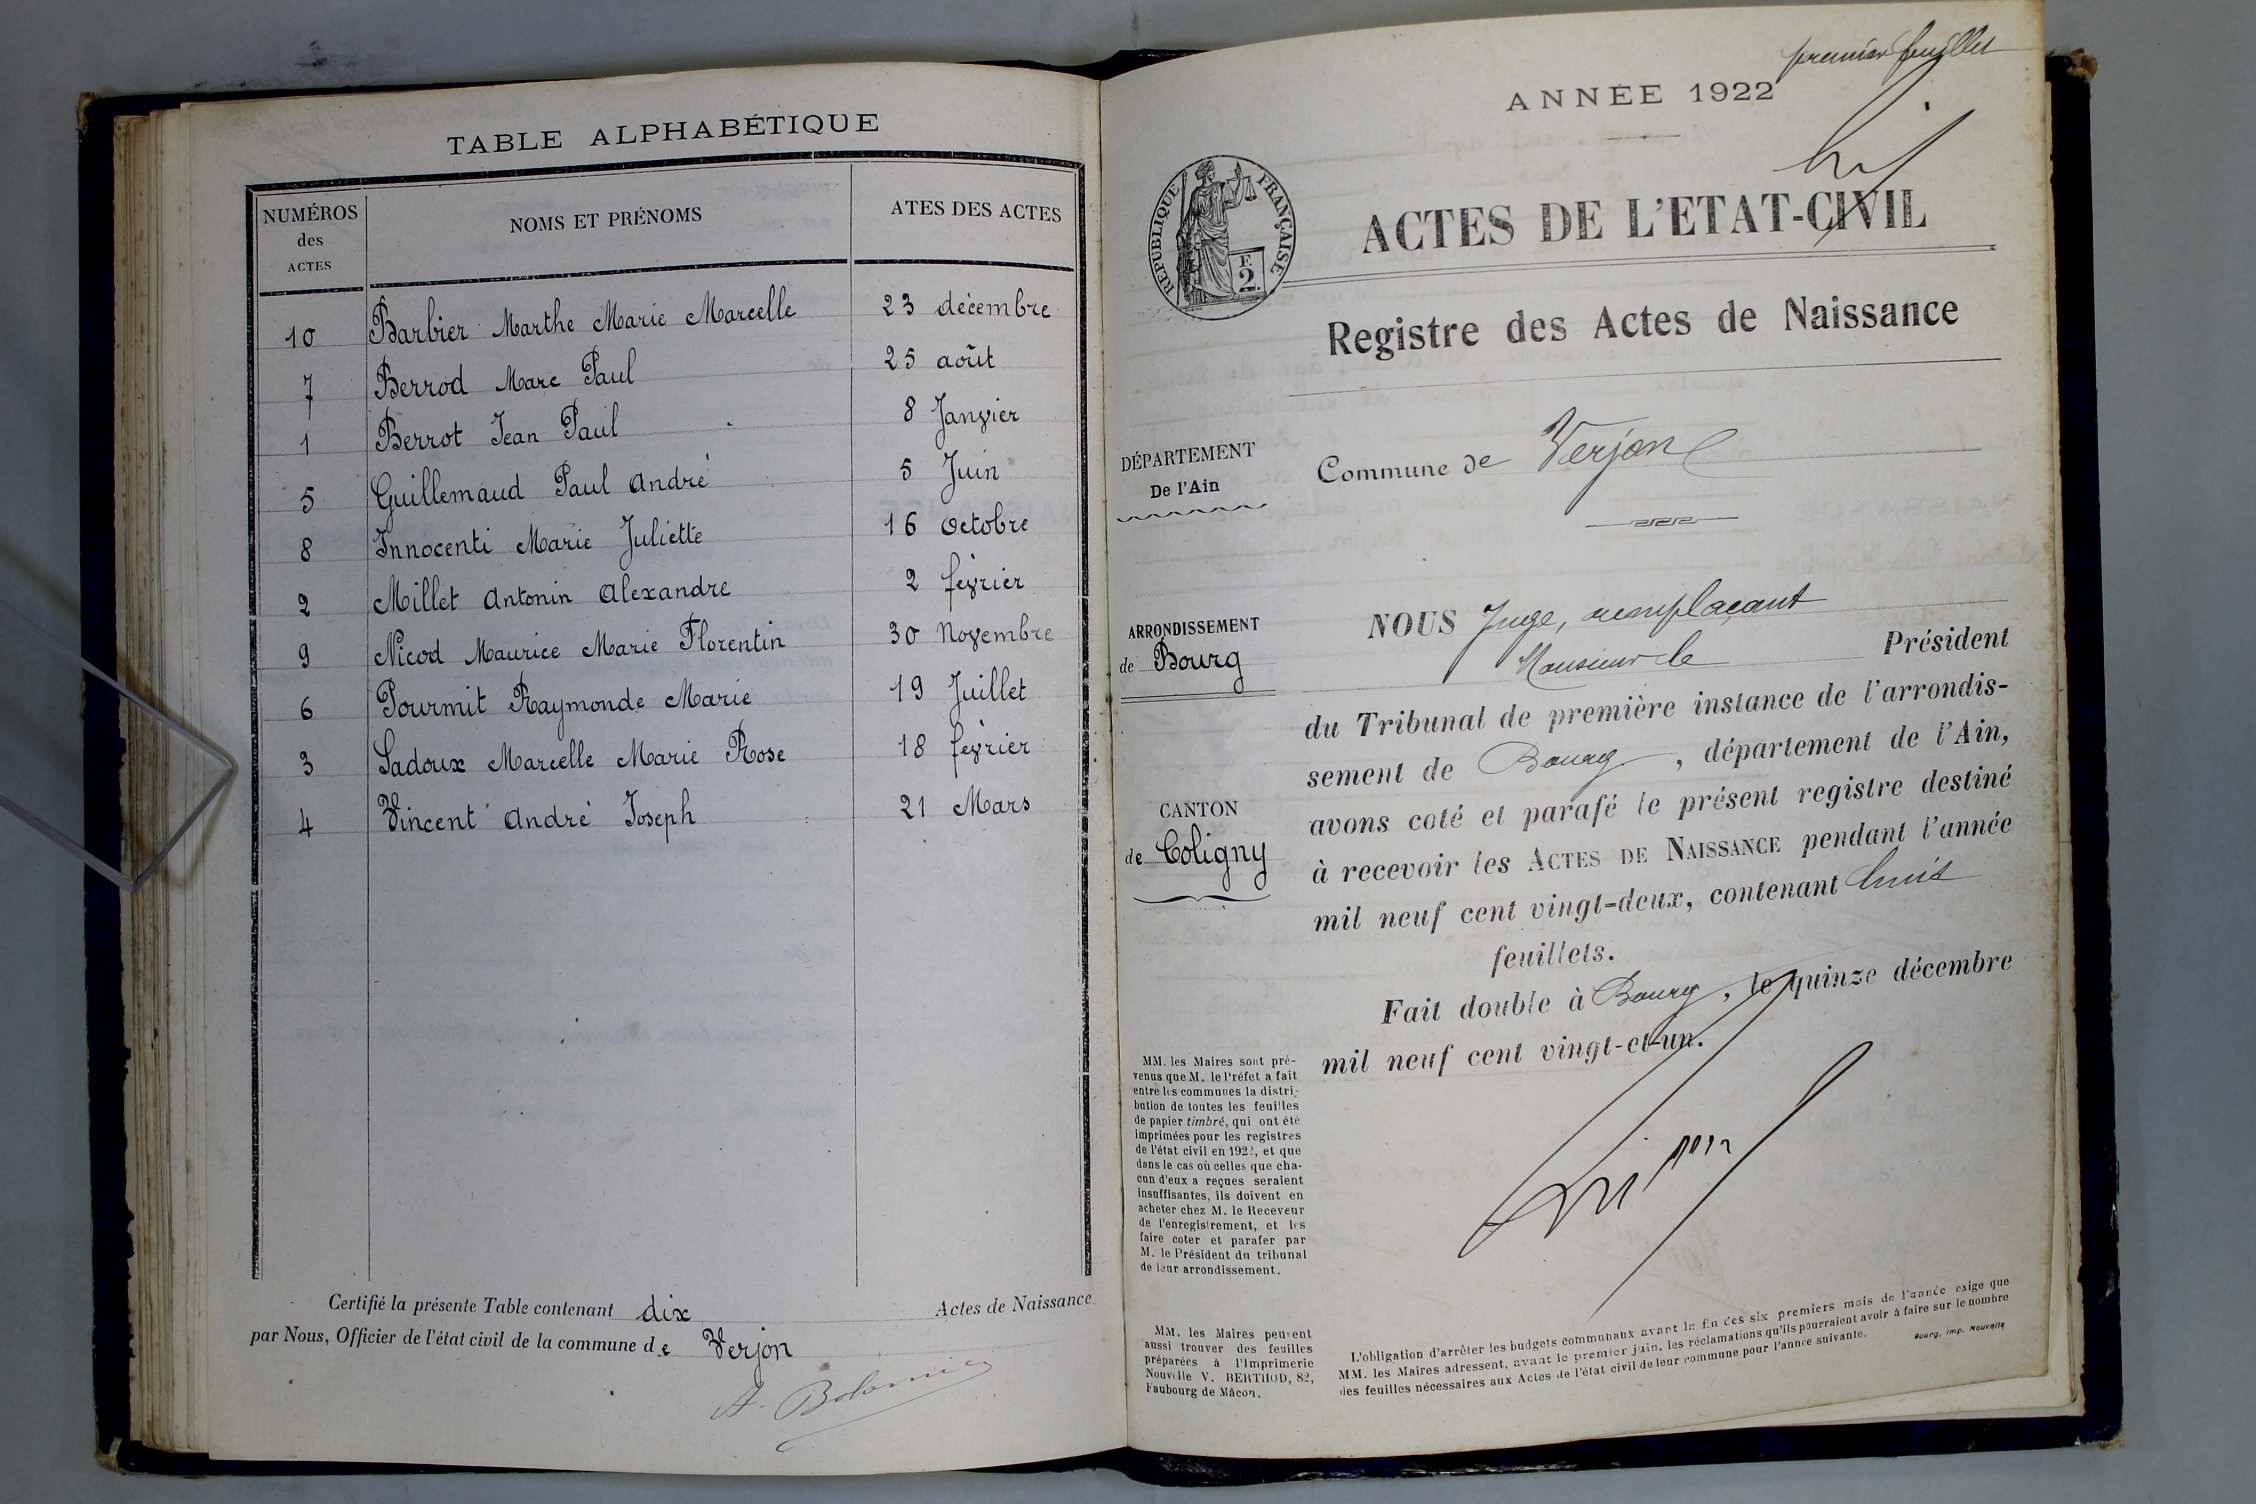 TABLE ALPHABÉTIQUE
NUMÉROS des ACTES
NOMS ET PRÉNOMS
ATES DES ACTES
10 Barbier Marthe Marie Marcelle 23 décembre
7 Berrod Marc Paul 25 août
1 Berrot Jean Paul 8 Janvier
5 Guillemaud Paul André 5 Juin
8 Innocenti Marie Juliette 16 octobre
2 Millet Antonin Alexandre 2 février
9 Nicod Maurice Marie Florentin 30 Novembre
6 Pourmit Raymonde Marie 19 Juillet
3 Sadoux Marcelle Marie Rose 18 février
4 Vincent André Joseph 21 Mars
Certifié la présente Table contenant dix Actes de Naissance
par Nous, Officier de l'état civil de la commune de Verjon
premier feuillet
ANNÉE 1922
RÉPUBLIQUE FRANÇAISE
F.
2
ACTES DE L'ETAT-CIVIL
Registre des Actes de Naissance
DÉPARTEMENT
De l'Ain
Commune de Verjon
ARRONDISSEMENT
de Bourg
CANTON
de Coligny
NOUS Juge, remplaçant
Monsieur le Président
du Tribunal de première instance de l'arrondis-
sement de Bourg, département de l'Ain,
avons coté et parafé le présent registre destiné
à recevoir les ACTES DE NAISSANCE pendant l'année
mil neuf cent vingt-deux, contenant huit
feuillets.
Fait double à Bourg, le quinze décembre
mil neuf cent vingt-et-un.
MM. les Maires sont pré-
venus que M. le Préfet a fait
entre les communes la distri-
bution de toutes les feuilles
de papier timbré, qui ont été
imprimées pour les registres
de l'état civil en 1922, et que
dans le cas où celles que cha-
cun d'eux a reçues seraient
insuffisantes, ils doivent en
acheter chez M. le Receveur
de l'enregistrement, et les
faire coter et parafer par
M. le Président du tribunal
de leur arrondissement.
MM. les Maires peuvent
aussi trouver des feuilles
préparées à l'Imprimerie
Nouvelle V. BERTHOD, 82,
Faubourg de Mâcon.
L'obligation d'arrêter les budgets communaux avant la fin des six premiers mois de l'année exige que
MM. les Maires adressent, avant le premier juin, les réclamations qu'ils pourraient avoir à faire sur le nombre
des feuilles nécessaires aux Actes de l'état civil de leur commune pour l'année suivante.
Bourg, Imp. Nouvelle